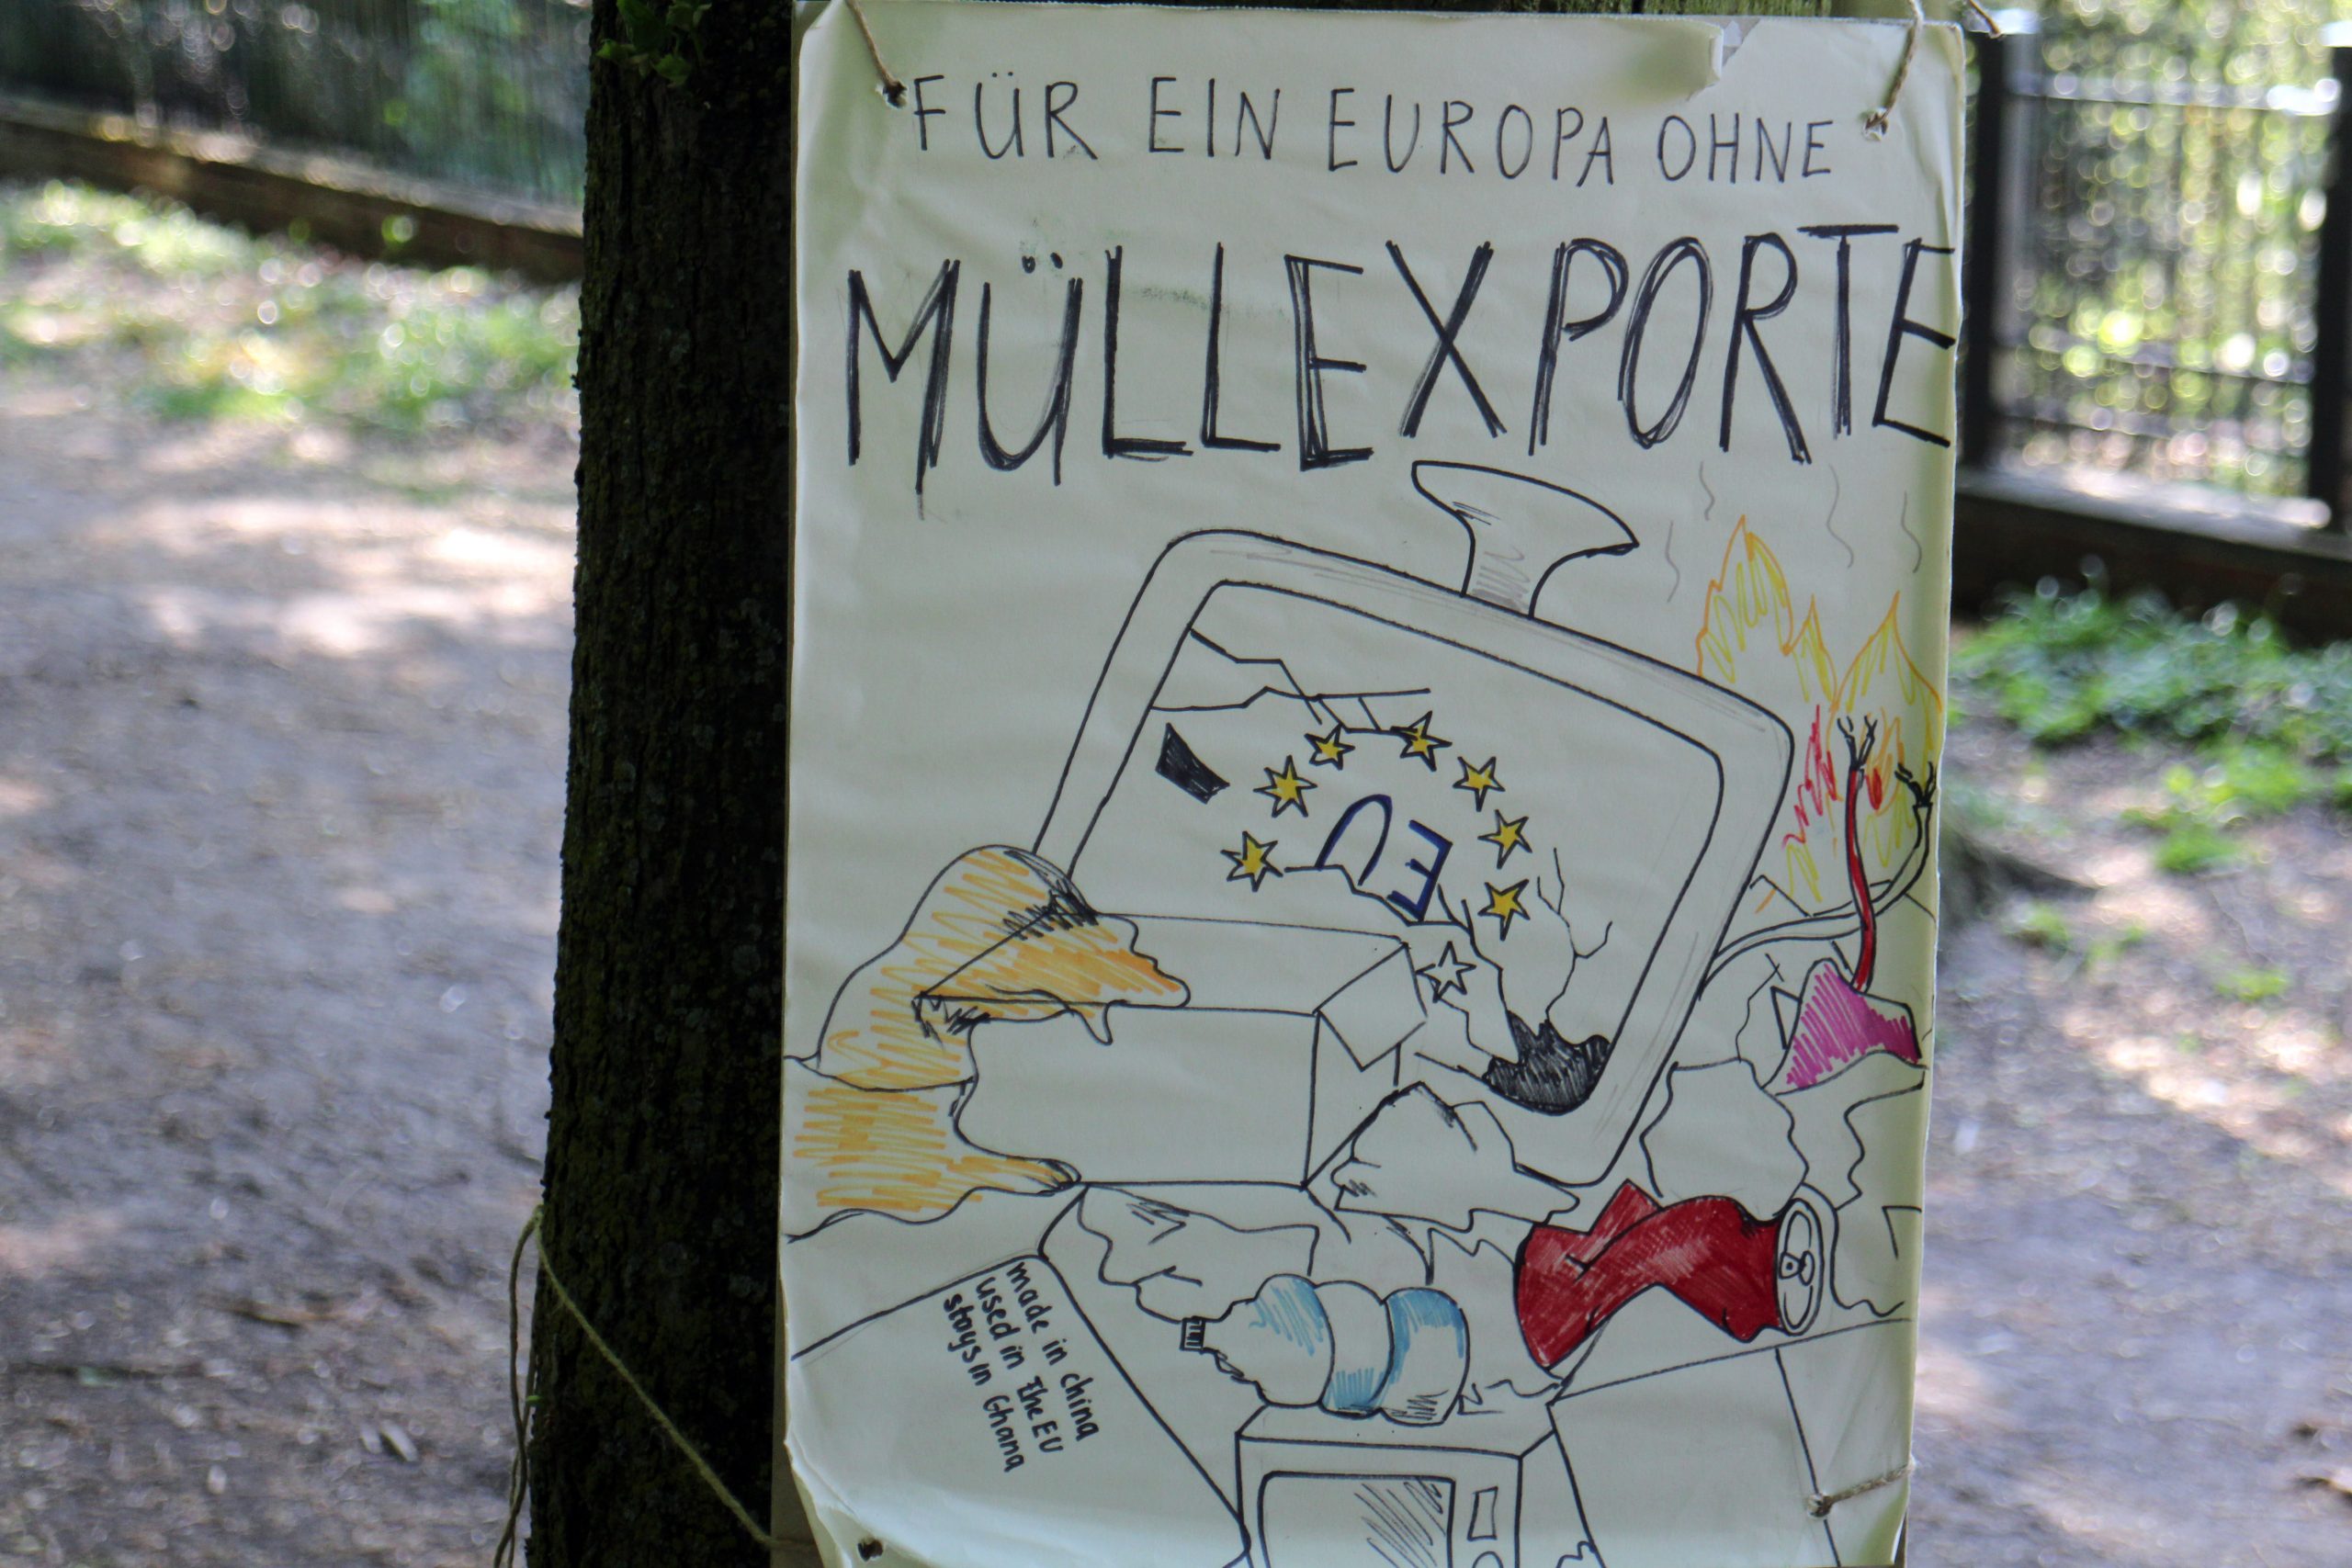 FÜR EIN EUROPA OHNE
MÜLLEXPORTE
EU
made in china
used in the EU
stays in Ghana